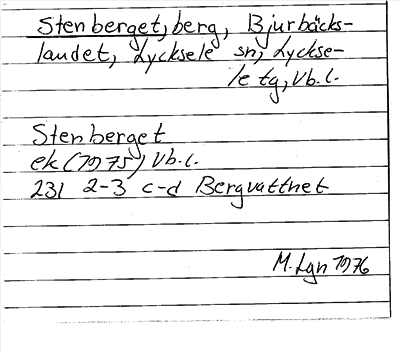 Stenberget, berg, Bjurbäcks-
landet, Lycksele sn, Lyckse-
le tg, Vb.l.
Stenberget
ek (1975) Vb.l.
231 2-3 c-d Bergvattnet
M. Lgn 1976